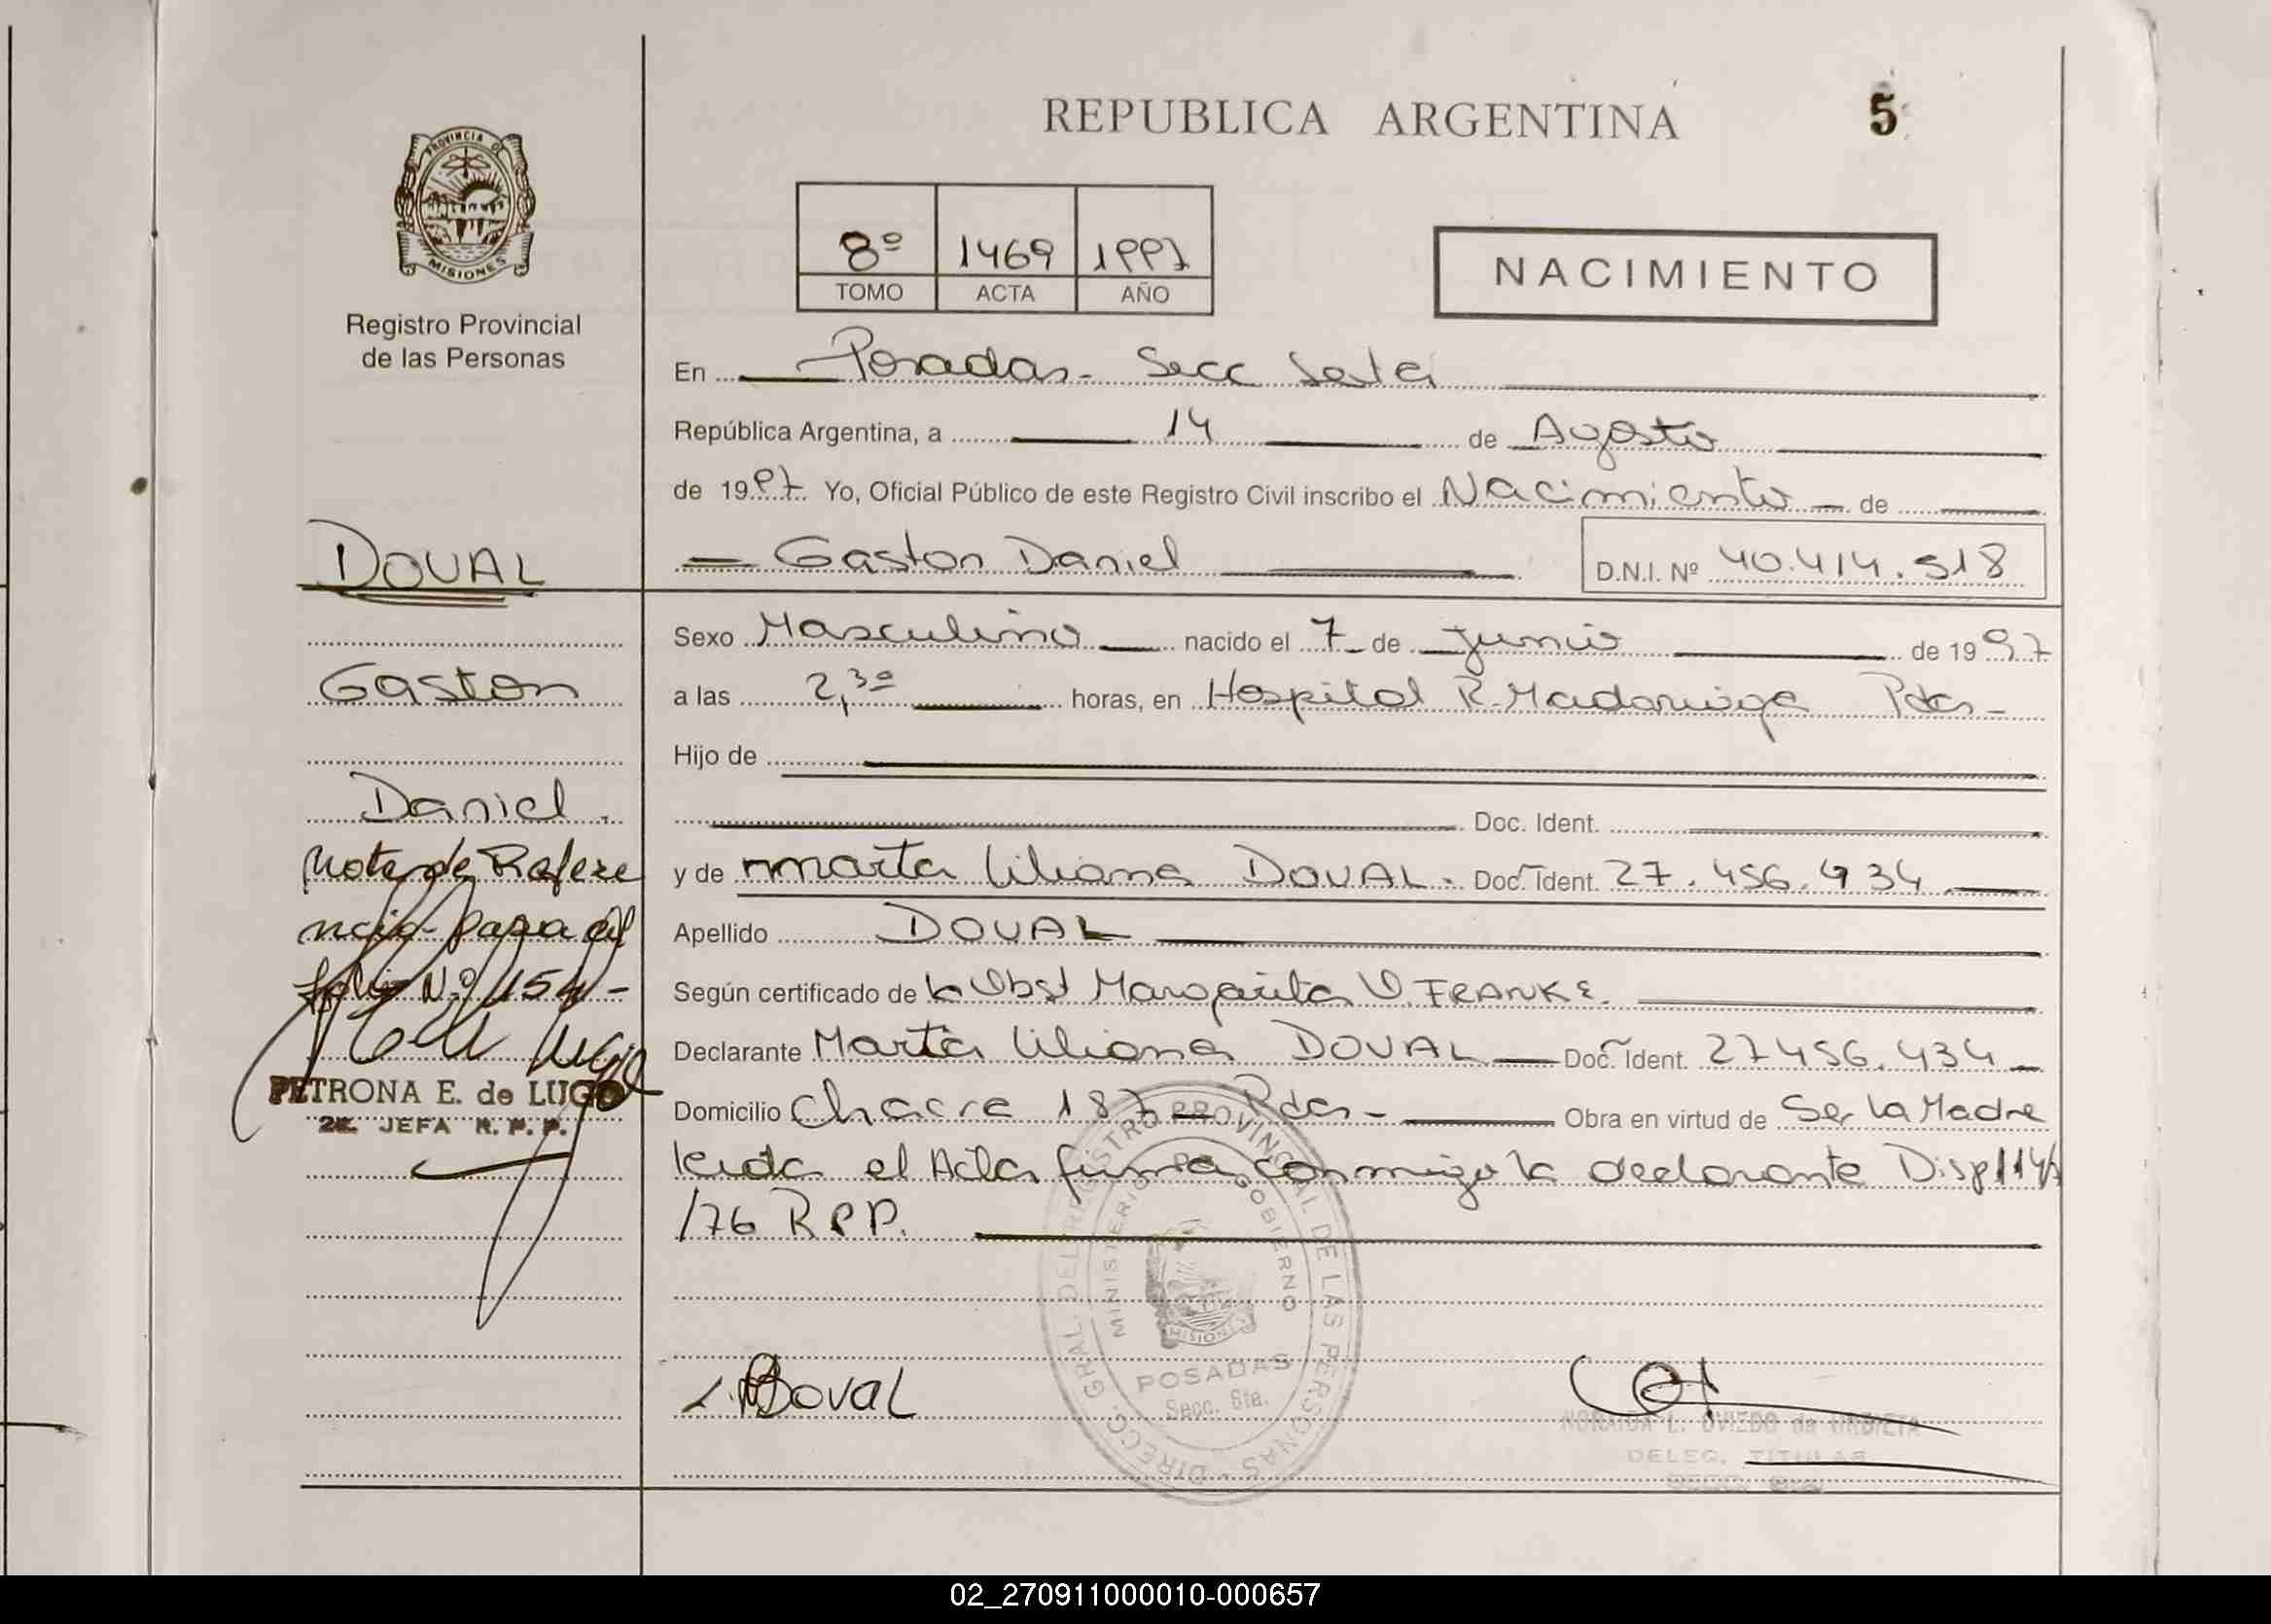 REPUBLICA ARGENTINA 5
PROVINCIA DE
MISIONES
Registro Provincial
de las Personas
8º 1469 1997
TOMO ACTA AÑO
NACIMIENTO
En Posadas - Secc Sexta
República Argentina, a 14 de Agosto
de 1997 Yo, Oficial Público de este Registro Civil inscribo el Nacimiento de
Gaston Daniel D.N.I. Nº 40.414.518
Sexo Masculino nacido el 7 de Junio de 1997
a las 2,30 horas, en Hospital R. Madariaga Pdas-
Hijo de
Doc. Ident.
y de Marta Liliana DOVAL. Doc. Ident. 27.456.434
Apellido DOVAL
Según certificado de la Obst Margarita V. FRANKE.
Declarante Marta Liliana DOVAL Doc. Ident. 27456.434
Domicilio Chacra 187 Pdas- Obra en virtud de Ser la Madre
leida el Acta firma conmigo la declarante Disp 114
/76 R.P.P.
DOVAL
Gaston
Daniel.
Nota de Refere
ncia para al
folio Nº 154-
PETRONA E. de LUGO
2a. JEFA R. P. P.
DIRECC. GRAL. DEL REGISTRO PROVINCIAL DE LAS PERSONAS
MINISTERIO DE GOBIERNO
MISIONES
POSADAS
Secc. 6ta.
L. Doval
L. OVIEDO de URBIETA
DELEG. TITULAR
02_270911000010-000657